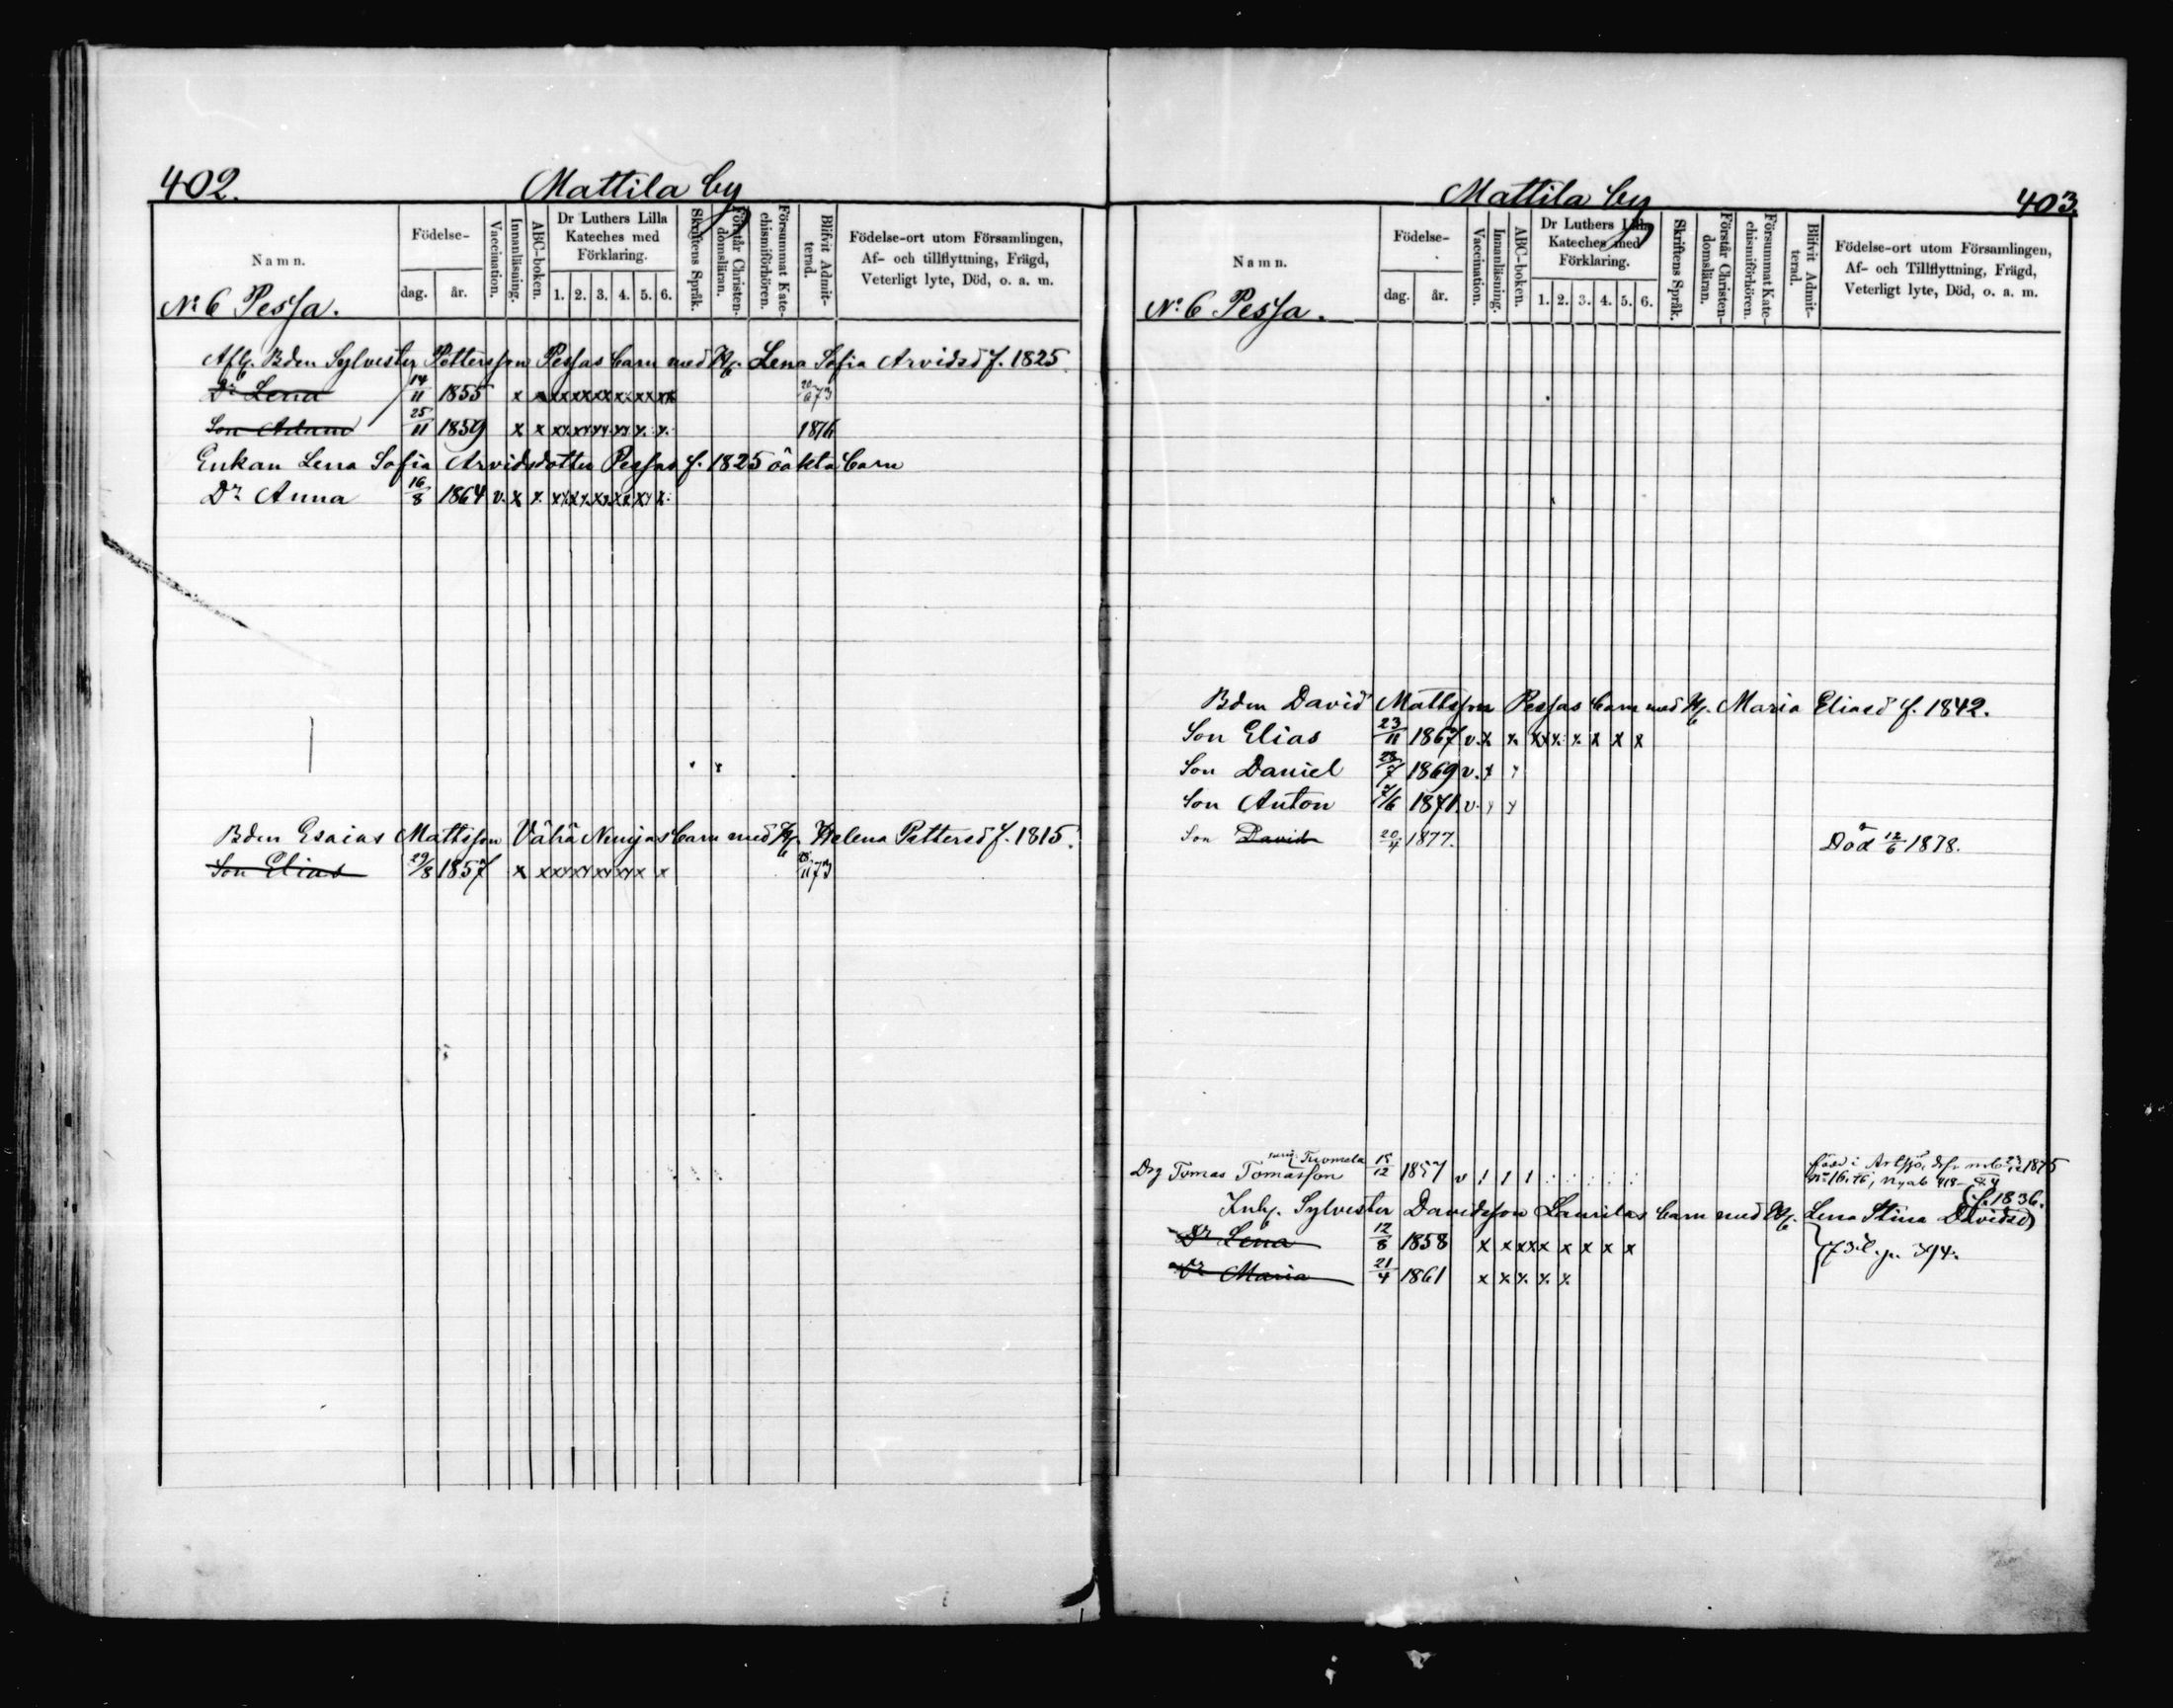 402.
Mattila by
Namn.
Födelse-
dag.
år.
Vaccination.
Innanläsning.
ABC-boken.
Dr Luthers Lilla Kateches med Förklaring.
1. 2. 3. 4. 5. 6.
Skriftens Språk.
Förstår Christendomsläran.
Försummat Katechismiförhören.
Blifvit Admitterad.
Födelse-ort utom Församlingen, Af- och tillflyttning, Frägd, Veterligt lyte, Död, o. a. m.
No 6 Pessa.
Afl. Bdm Sylvester Pettersson Pessas barn med H. Lena Sofia Arvidsd f. 1825.
Dr Lena 14/11 1855 x x xx xx xx x x xx xx 20/6 73
Son Adam 25/11 1859 x x xx xx xx xx x x 1876
Enkan Lena Sofia Arvidsdotter Pessas f. 1825 oäkta barn
Dr Anna 16/8 1864 v. x x xx xx xx xx xx x
Bdm Esaias Mattsson Vähä Nuijas barn med H. Helena Pettersd f. 1815.
Son Elias 29/8 1857 x x xx xx xx xx x x 73
Mattila by
403.
Namn.
Födelse-
dag.
år.
Vaccination.
Innanläsning.
ABC-boken.
Dr Luthers Lilla Kateches med Förklaring.
1. 2. 3. 4. 5. 6.
Skriftens Språk.
Förstår Christendomsläran.
Försummat Katechismiförhören.
Blifvit Admitterad.
Födelse-ort utom Församlingen, Af- och Tillflyttning, Frägd, Veterligt lyte, Död, o. a. m.
No 6 Pessa.
Bdm David Mattsson Pessas barn med H. Maria Eliasd f. 1842.
Son Elias 23/11 1867 v. x x xx x x x x x
Son Daniel 23/7 1869 v. x x
Son Anton 7/6 1871 v. x x
Son David 20/4 1877. Död 12/6 1878.
Tuomela
Drg Tomas Tomasson 15/12 1857 v
född i Artsjö, 1875
Inh. Sylvester Davidsson Laurilas barn med H. Lena Stina Davidsd f. 1836.
Dr Lena 12/8 1858 x x xx x x x x x
Dr Maria 21/4 1861 x x x x x
p. 394.